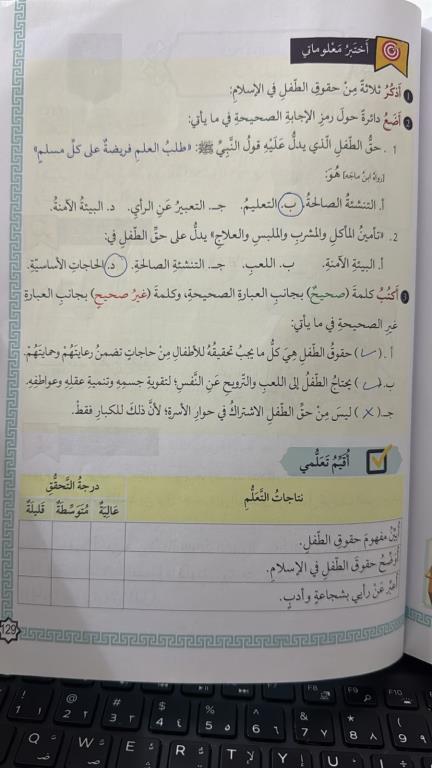 أَخْتَبِرُ مَعْلوماتي
1 أَذكُرُ ثلاثةً مِنْ حقوقِ الطّفلِ في الإسلامِ:
2 أَضَعُ دائرةً حولَ رمزِ الإجابةِ الصحيحةِ في ما يأتي:
1. حقُّ الطّفلِ الّذي يدلُّ عَلَيْهِ قولُ النَّبيِّ ﷺ: «طلبُ العلمِ فريضةٌ على كلِّ مسلمٍ»
[رواهُ ابنُ ماجه] هُوَ:
أ. التنشئةُ الصالحةُ. ب. التعليمُ. جـ. التعبيرُ عَنِ الرأي. د. البيئةُ الآمنةُ.
2. «تأمينُ المأكلِ والمشربِ والملبسِ والعلاجِ» يدلُّ على حقِّ الطّفلِ في:
أ. البيئةِ الآمنةِ. ب. اللعبِ. جـ. التنشئةِ الصالحةِ. د. الحاجاتِ الأساسيّةِ.
3 أَكتُبُ كلمةَ (صحيحٌ) بجانبِ العبارةِ الصحيحةِ، وكلمةَ (غيرُ صحيحٍ) بجانبِ العبارةِ
غيرِ الصحيحةِ في ما يأتي:
أ. (✓) حقوقُ الطّفلِ هِيَ كلُّ ما يجبُ تحقيقُهُ للأطفالِ مِنْ حاجاتٍ تضمنُ رعايتَهُمْ وحمايتَهُمْ.
ب. (✓) يحتاجُ الطّفلُ إلى اللعبِ والتّرويحِ عَنِ النَّفسِ؛ لتقويةِ جسمِهِ وتنميةِ عقلِهِ وعواطفِهِ.
جـ. (✗) ليسَ مِنْ حقِّ الطّفلِ الاشتراكُ في حوارِ الأسرةِ؛ لأنَّ ذلكَ للكبارِ فقطْ.
أُقَيِّمُ تَعَلُّمي
نتاجاتُ التَّعَلُّمِ
درجةُ التَّحقُّقِ
عاليَةٌ مُتَوَسِّطَةٌ قَليلَةٌ
أُبيّنُ مفهومَ حقوقِ الطّفلِ.
أُوَضِّحُ حقوقَ الطّفلِ في الإسلامِ.
أُعبّرُ عَنْ رأيي بشجاعةٍ وأدبٍ.
129
! 1 ١
@ 2 ٢
# 3 ٣
$ 4 ٤
% 5 ٥
^ 6 ٦
& 7 ٧
* 8 ٨
( 9 ٩
F7 F8 F9 F10
Q W E R T Y U I